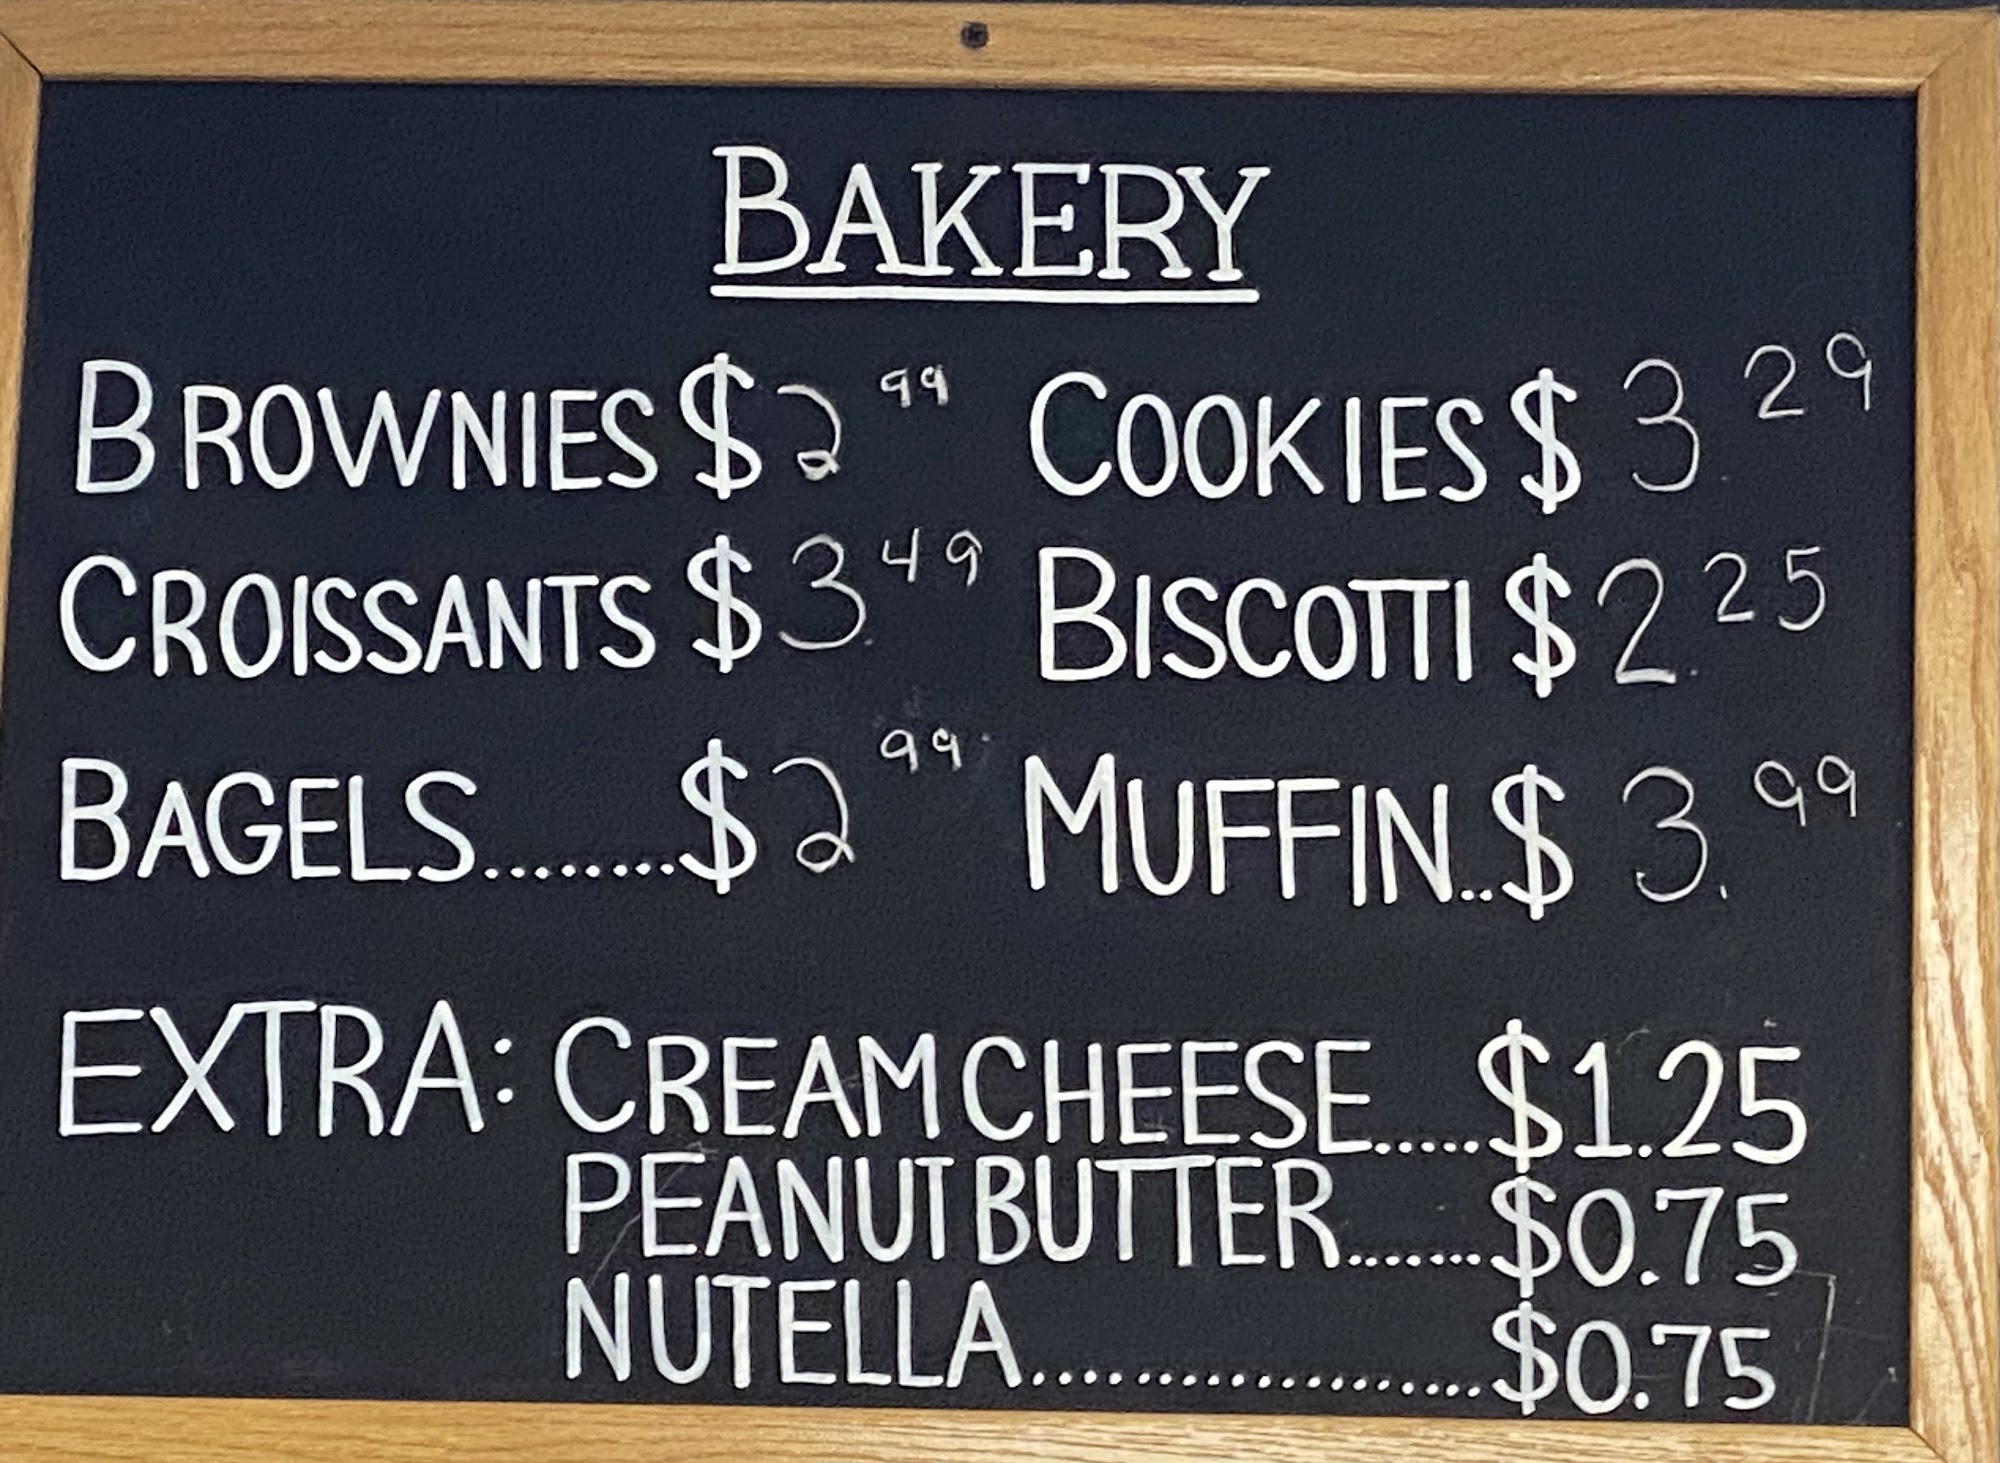 BAKERY
BROWNIES $2 99 COOKIES $3.29
CROISSANTS $3.49 BISCOTTI $2.25
BAGELS........$2 99 MUFFIN..$3.99
EXTRA: CREAM CHEESE.....$1.25
PEANUT BUTTER.......$0.75
NUTELLA....................$0.75